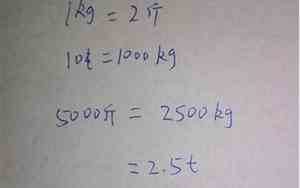 1kg = 2斤
1吨 = 1000kg
5000斤 = 2500kg
= 2.5t